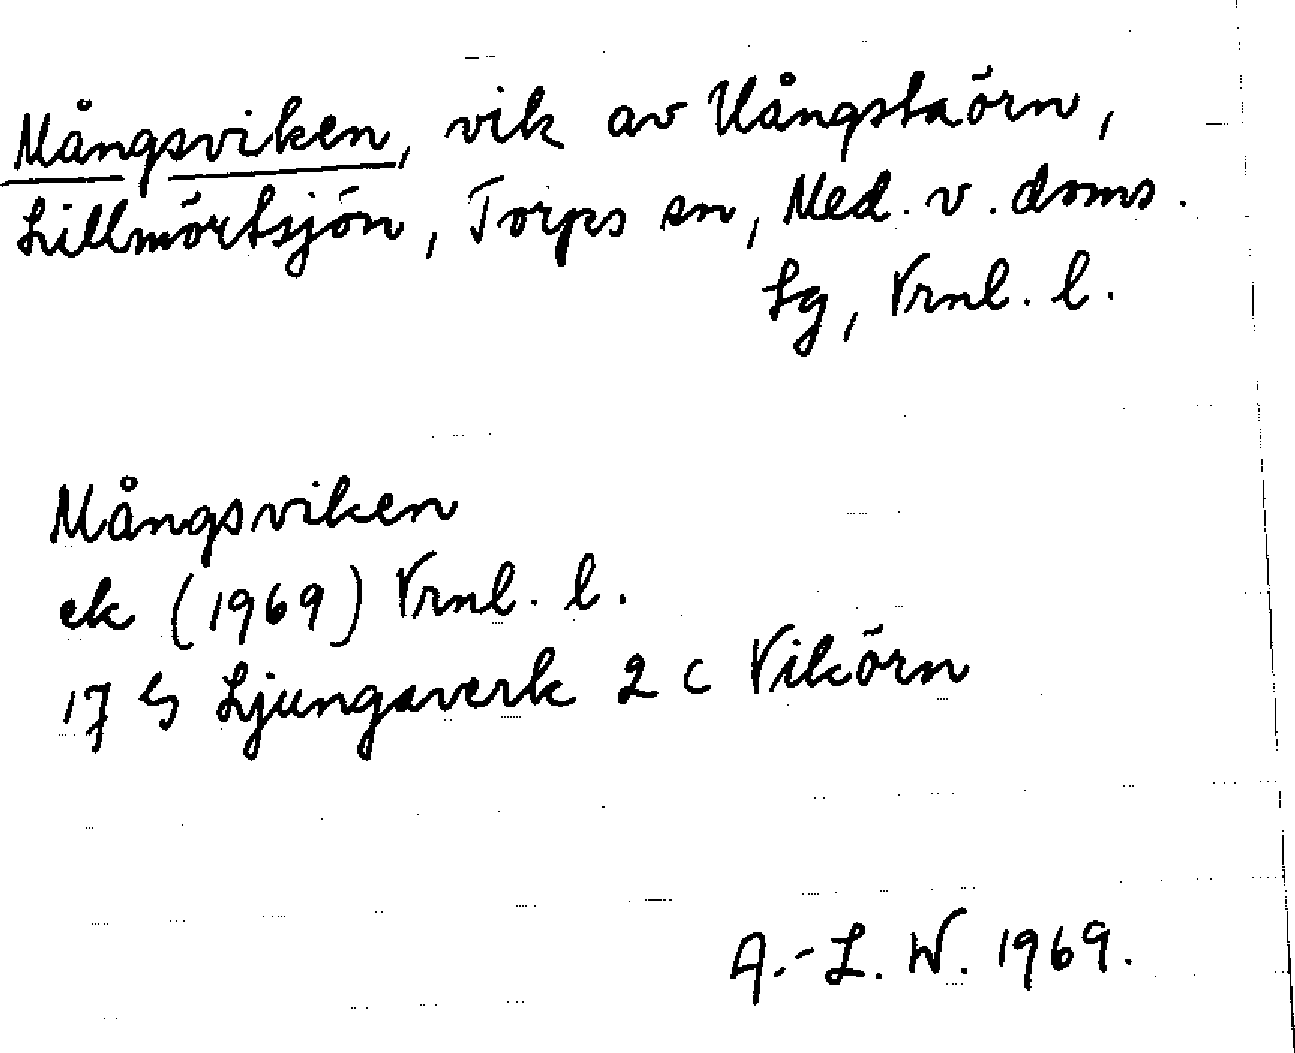 Mångsviken, vik av Vångstaörn,
Lillmörtsjön, Torps sn, Med. v. doms.
Lg, Vrnl. l.
Mångsviken
ek (1969) Vrnl. l.
17 G Ljungaverk 2 c Vikörn
A.-L. W. 1969.